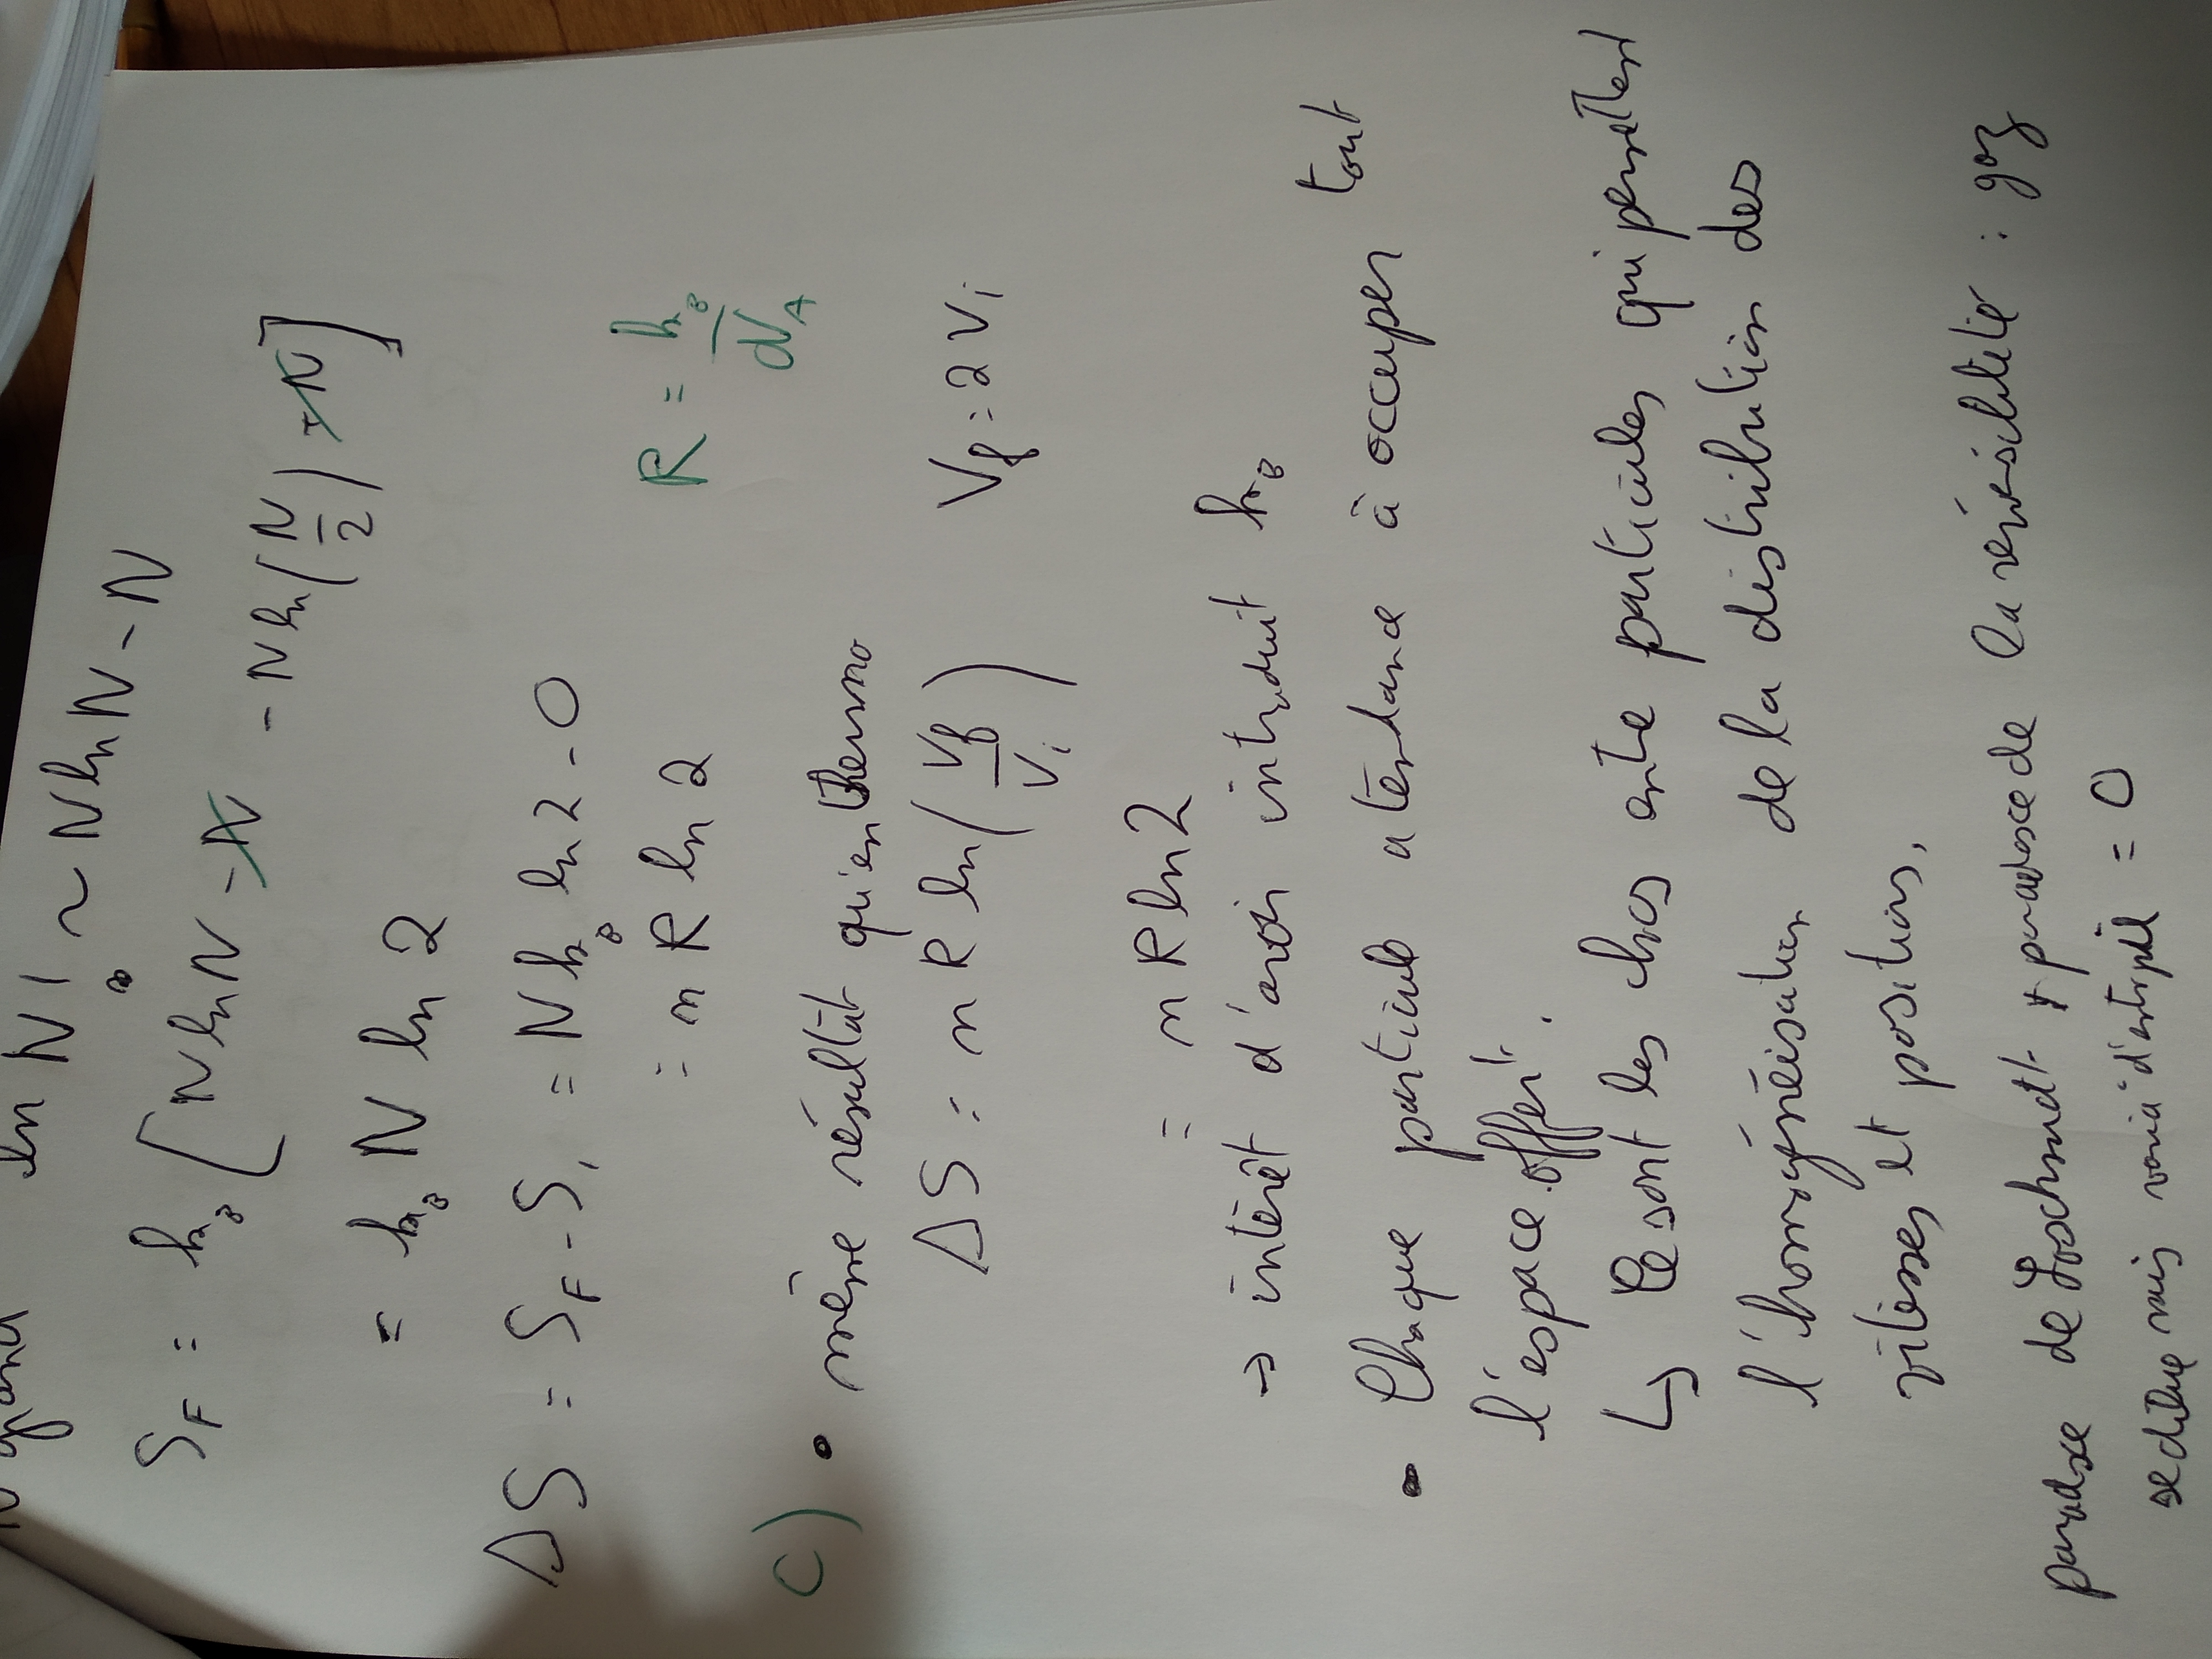 N grand ln N! ~ N ln N - N
∞
S_F = k_B [N ln N - N - N ln(N/2) + N]
= k_B N ln 2
ΔS = S_F - S_i = N k_B ln 2 - 0
= n R ln 2 R = k_B/𝒩_A
c) • même résultat qu'en thermo
ΔS = n R ln(V_f/V_i) V_f = 2 V_i
= n R ln 2
→ intérêt d'avoir introduit k_B
• Chaque particule a tendance à occuper tout
l'espace offert.
↳ Ce sont les chos entre particules qui permettent
l'homogénéisation de la distribution des
vitesses et positions.
paradoxe de Loschmidt paradoxe de la réversibilité : gaz
se dilue mais varia° d'entropie = 0